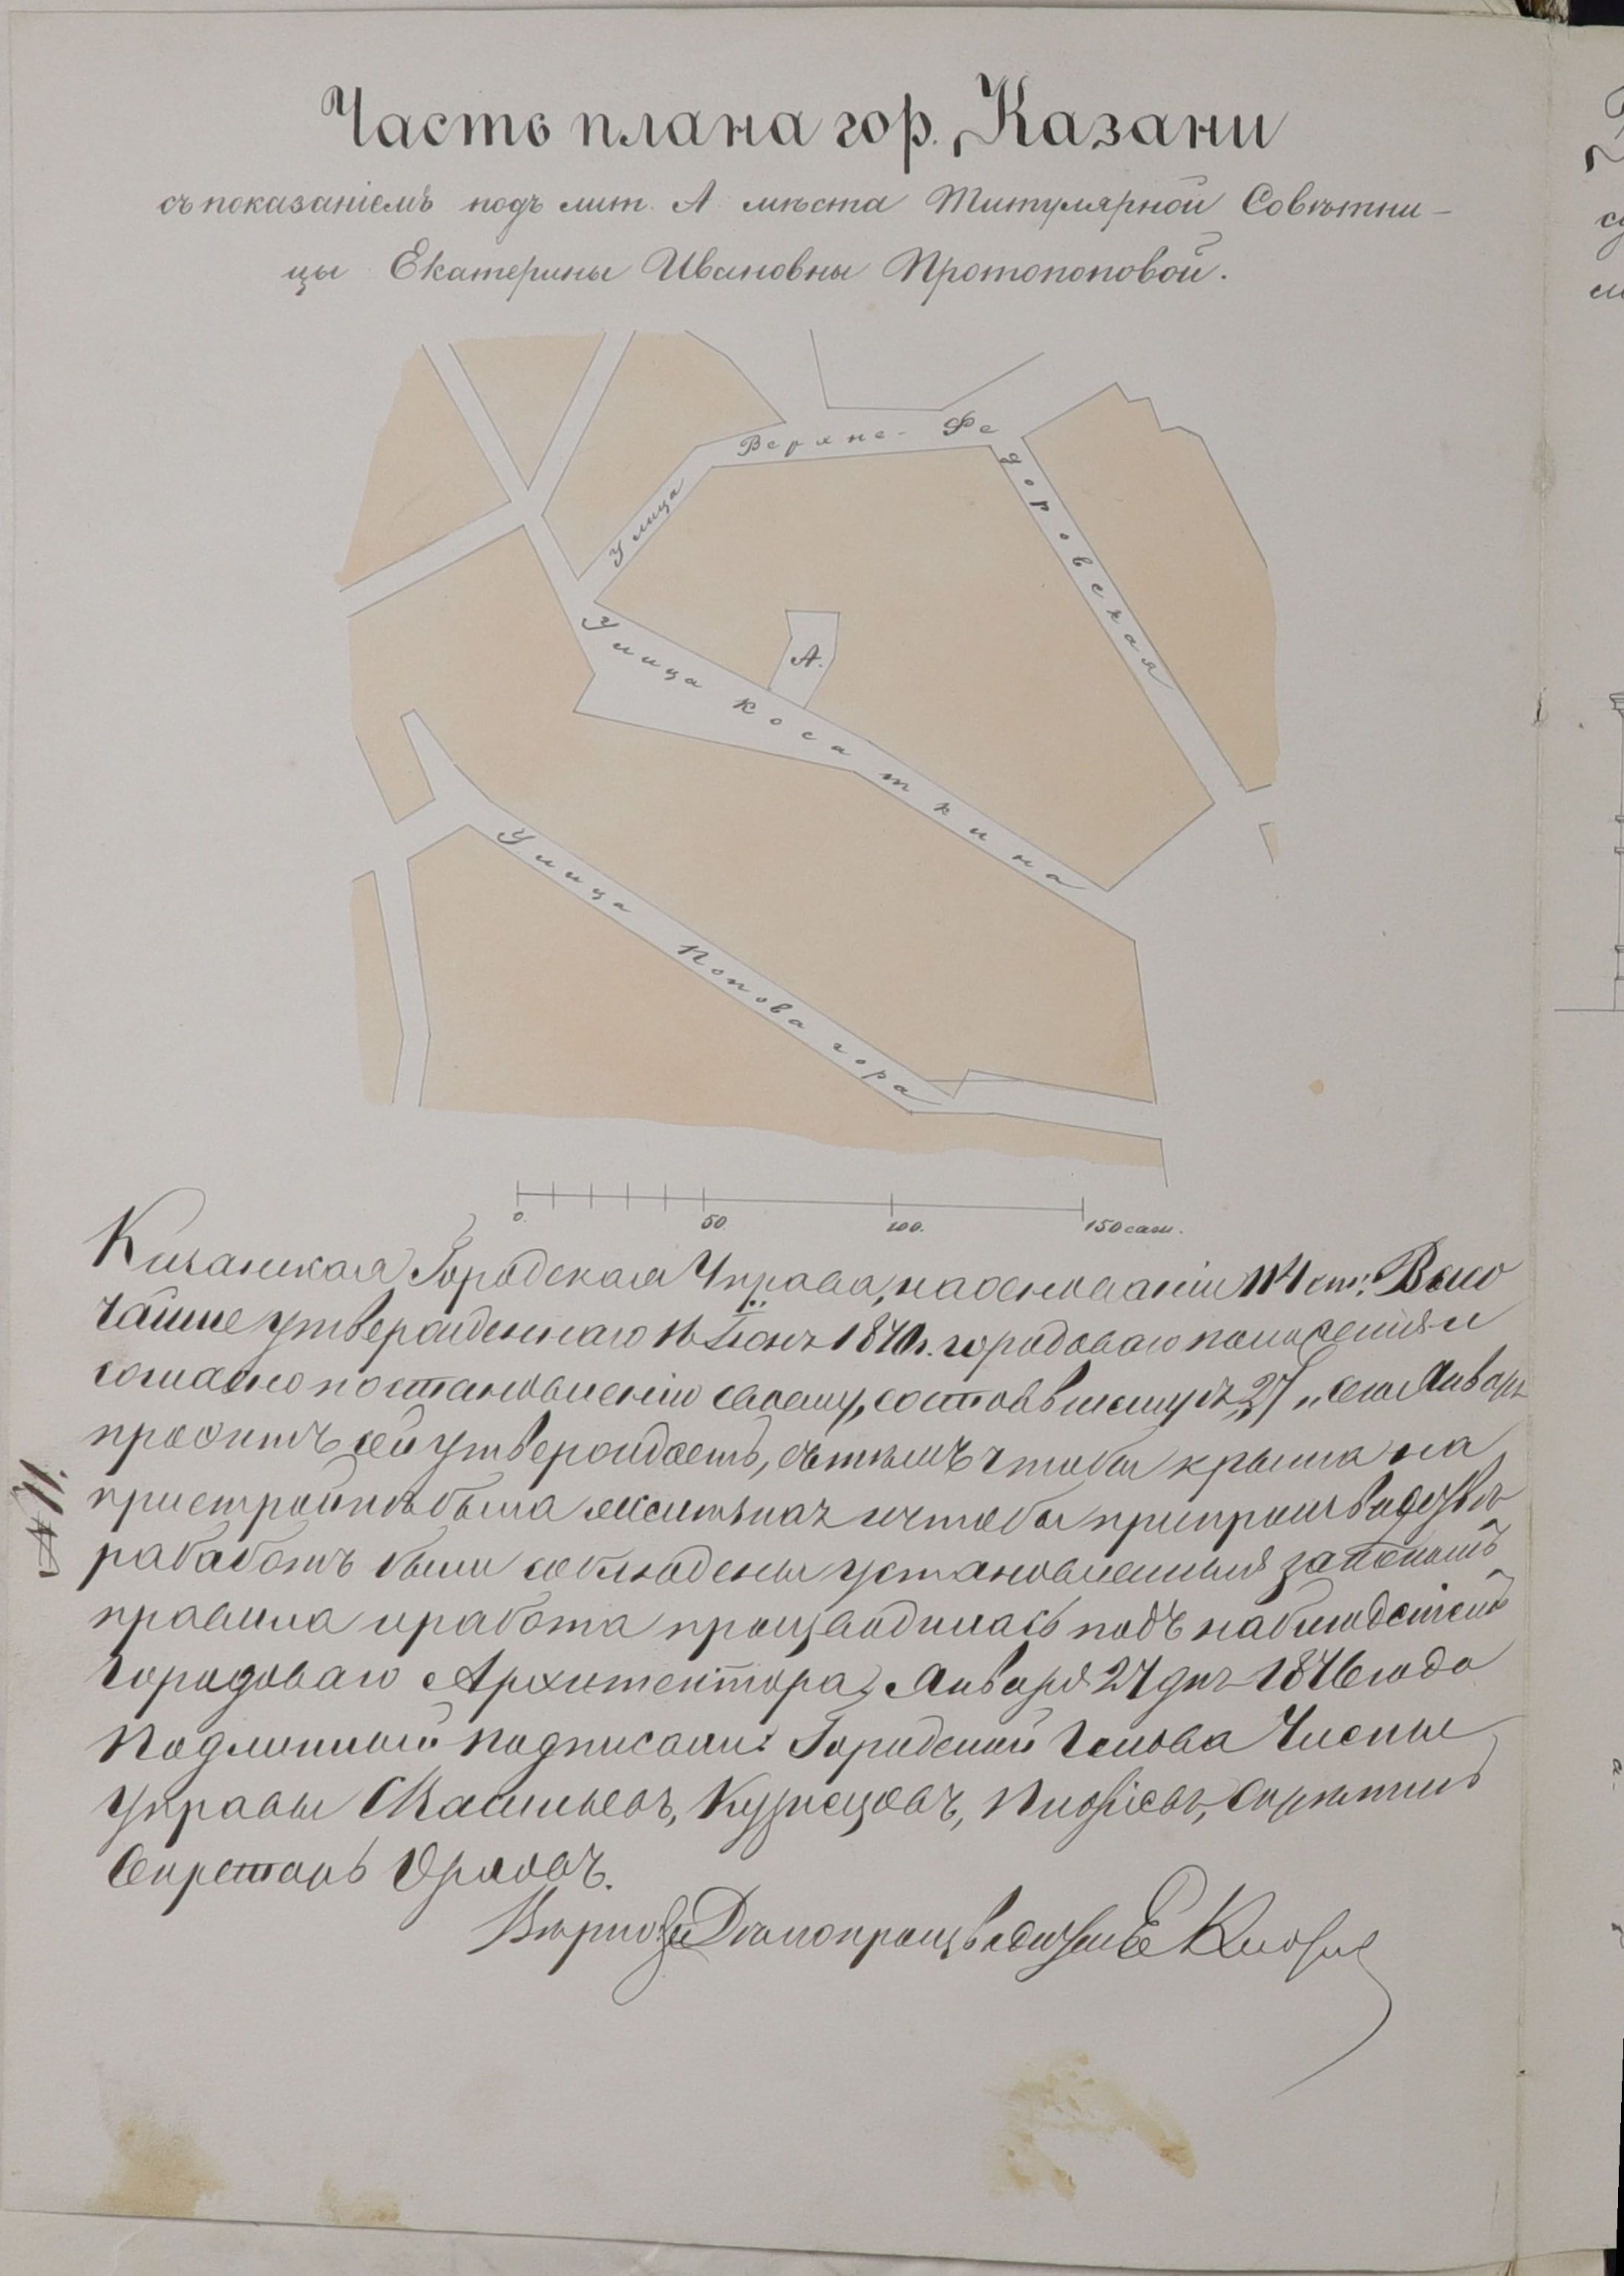 Часть плана гор. Казани
съ показаніемъ подъ лит. А мѣста Титулярной Совѣтни-
цы Екатерины Ивановны Протопоповой.
Верхне-Федоровская
Улица
А.
Улица Косаткина
Улица Попова гора
0. 50. 100. 150 саж.
Казанская Городская Управа, на основаніи 114 ст: Высо
чайше утвержденнаго 16 Іюня 1870 г. городоваго положенія и
согласно постановленію своему, состоявшемуся 27 сего Января
проэктъ сей утверждаетъ, съ тѣмъ чтобы крыша на
пристройкѣ была желѣзная и чтобы при производствѣ
работъ были соблюдены установленныя закономъ
правила и работа производилась подъ наблюденіемъ
Городоваго Архитектора, Января 27 дня 1876 года
Подлинный подписали: Городской Голова Члены
Управы Васильевъ, Кузнецовъ,
Секретарь Орловъ.
Вѣрно: Дѣлопроизводитель Е
№ 11.